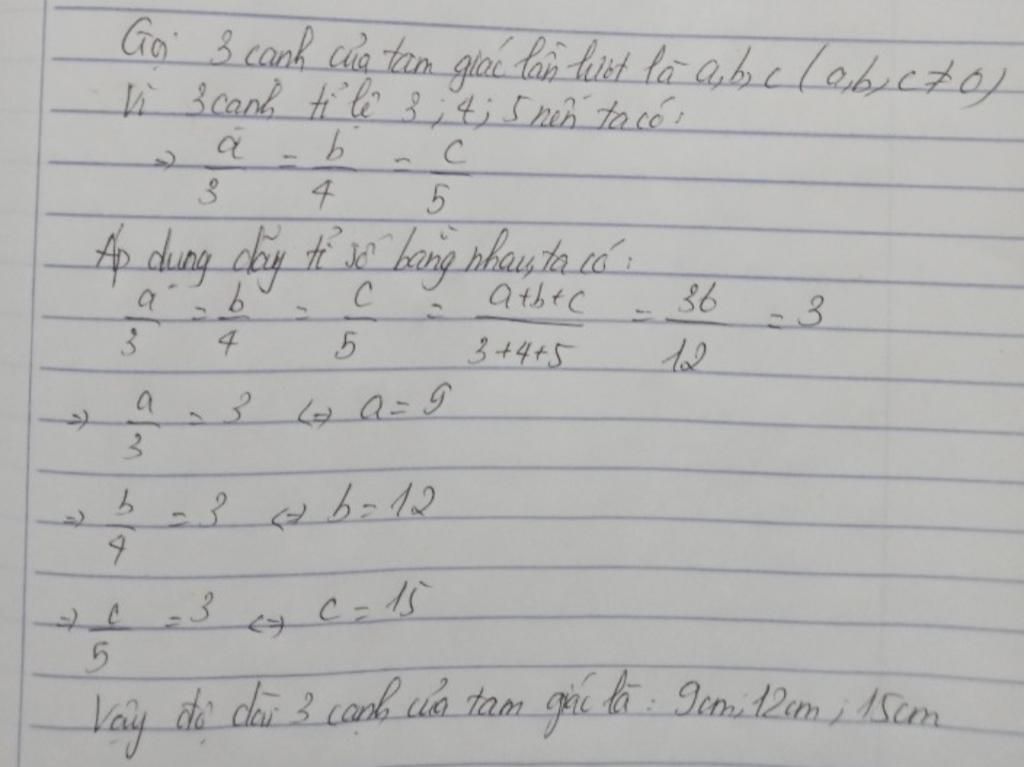 Gọi 3 cạnh của tam giác lần lượt là a,b,c (a,b,c ≠ 0)
Vì 3 cạnh tỉ lệ 3; 4; 5 nên ta có:
=> a/3 = b/4 = c/5
Áp dụng dãy tỉ số bằng nhau, ta có:
a/3 = b/4 = c/5 = a+b+c/3+4+5 = 36/12 = 3
=> a/3 = 3 <=> a = 9
=> b/4 = 3 <=> b = 12
=> c/5 = 3 <=> c = 15
Vậy độ dài 3 cạnh của tam giác là: 9cm; 12cm; 15cm